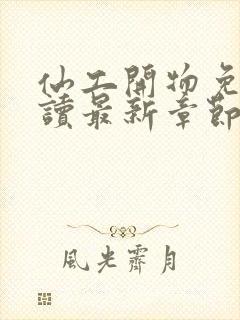 仙工開物免
讀最新章節
風光霽月